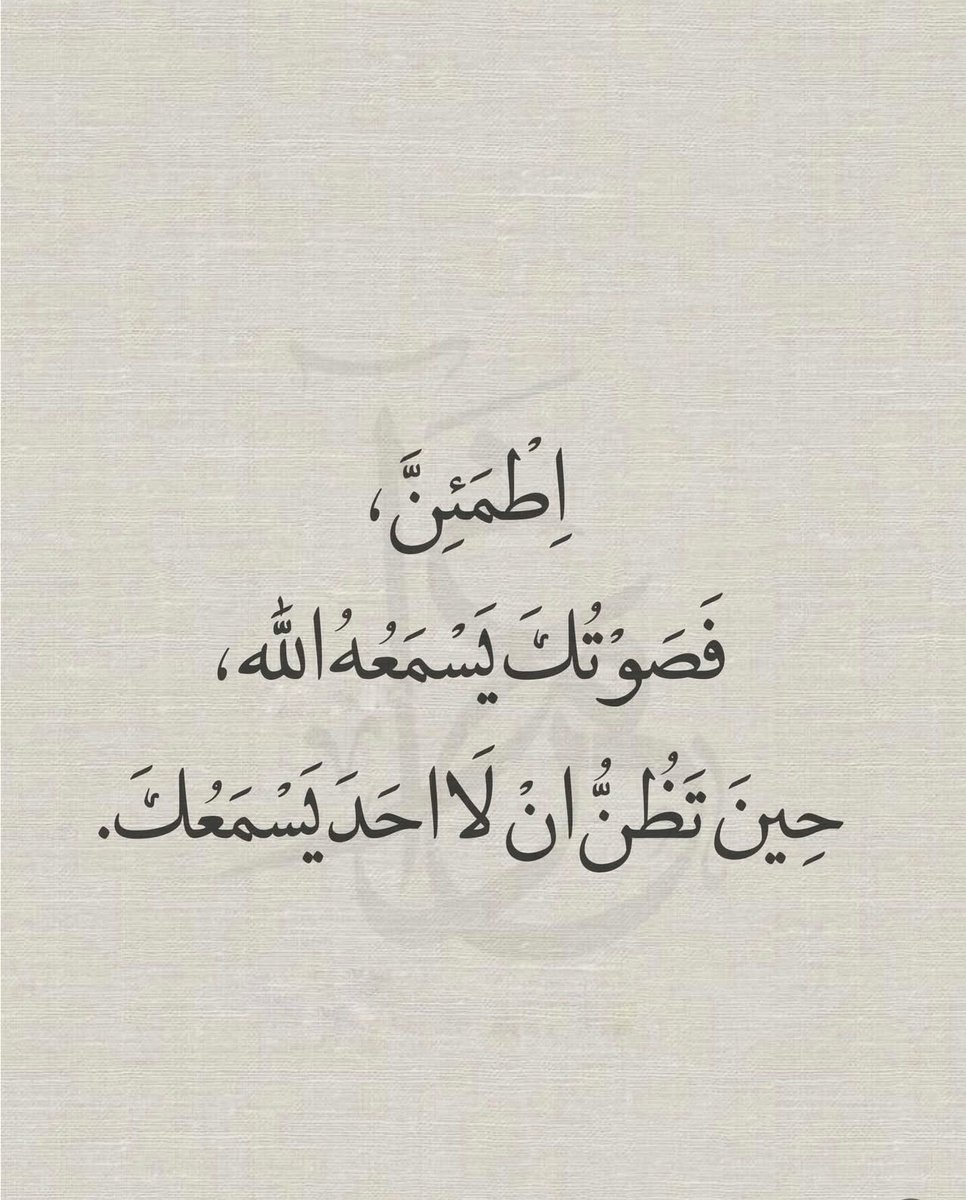 اِطْمَئِنَّ،
فَصَوْتُكَ يَسْمَعُهُ اللّٰه،
حِينَ تَظُنُّ انْ لَا احَدَ يَسْمَعُكَ.